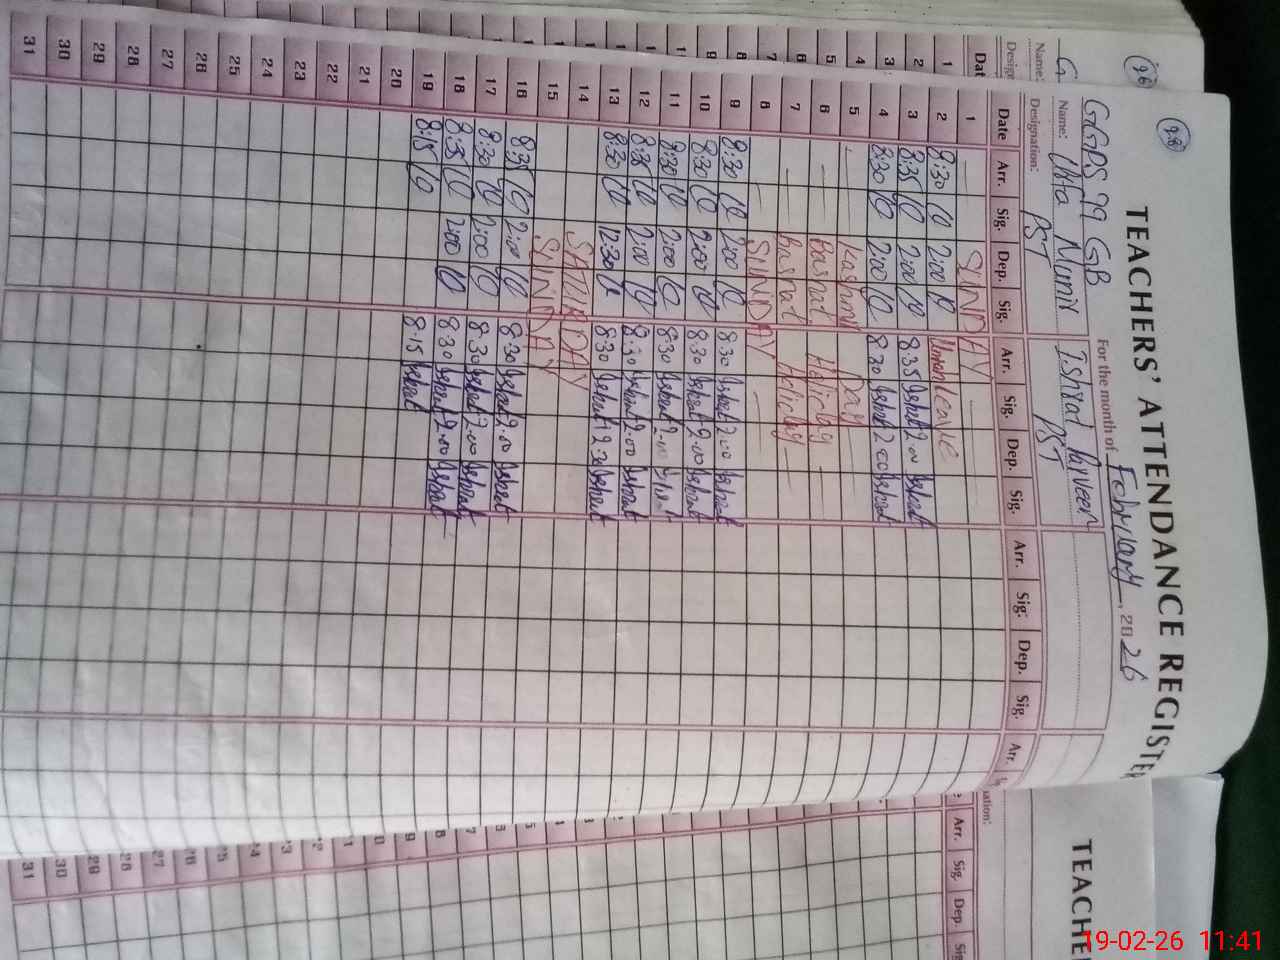 TEACHERS' ATTENDANCE REGISTER
GGPS 99 GB For the month of February, 2026
Name: Munir Ishrat Parveen
Designation: PST PST
Date Arr. Sig. Dep. Sig. Arr. Sig. Dep. Sig. Arr. Sig. Dep. Sig. Arr.
1 — SUNDAY —
2 8:30 2:00 leave
3 8:35 2:00 8:35 Ishrat 2:00 Ishrat
4 8:30 2:00 8:30 Ishrat 2:00 Ishrat
5 — Kashmir Day —
6 — Basnat Holiday —
7 — Basnat Holiday —
8 — SUNDAY —
9 8:30 2:00 8:30 Ishrat 2:00 Ishrat
10 8:30 2:00 8:30 Ishrat 2:00 Ishrat
11 8:30 2:00 8:30 Ishrat 2:00
12 8:35 2:00 8:30 Ishrat 2:00 Ishrat
13 8:30 12:30 8:30 Ishrat 12:30 Ishrat
14 SATURDAY
15 SUNDAY
16 8:35 2:00 8:30 Ishrat 2:00 Ishrat
17 8:30 2:00 8:30 Ishrat 2:00 Ishrat
18 8:35 2:00 8:30 Ishrat 2:00 Ishrat
19 8:15 8:15 Ishrat
20
21
22
23
24
25
26
27
28
29
30
31
TEACHE
Arr. Sig. Dep.
19-02-26 11:41